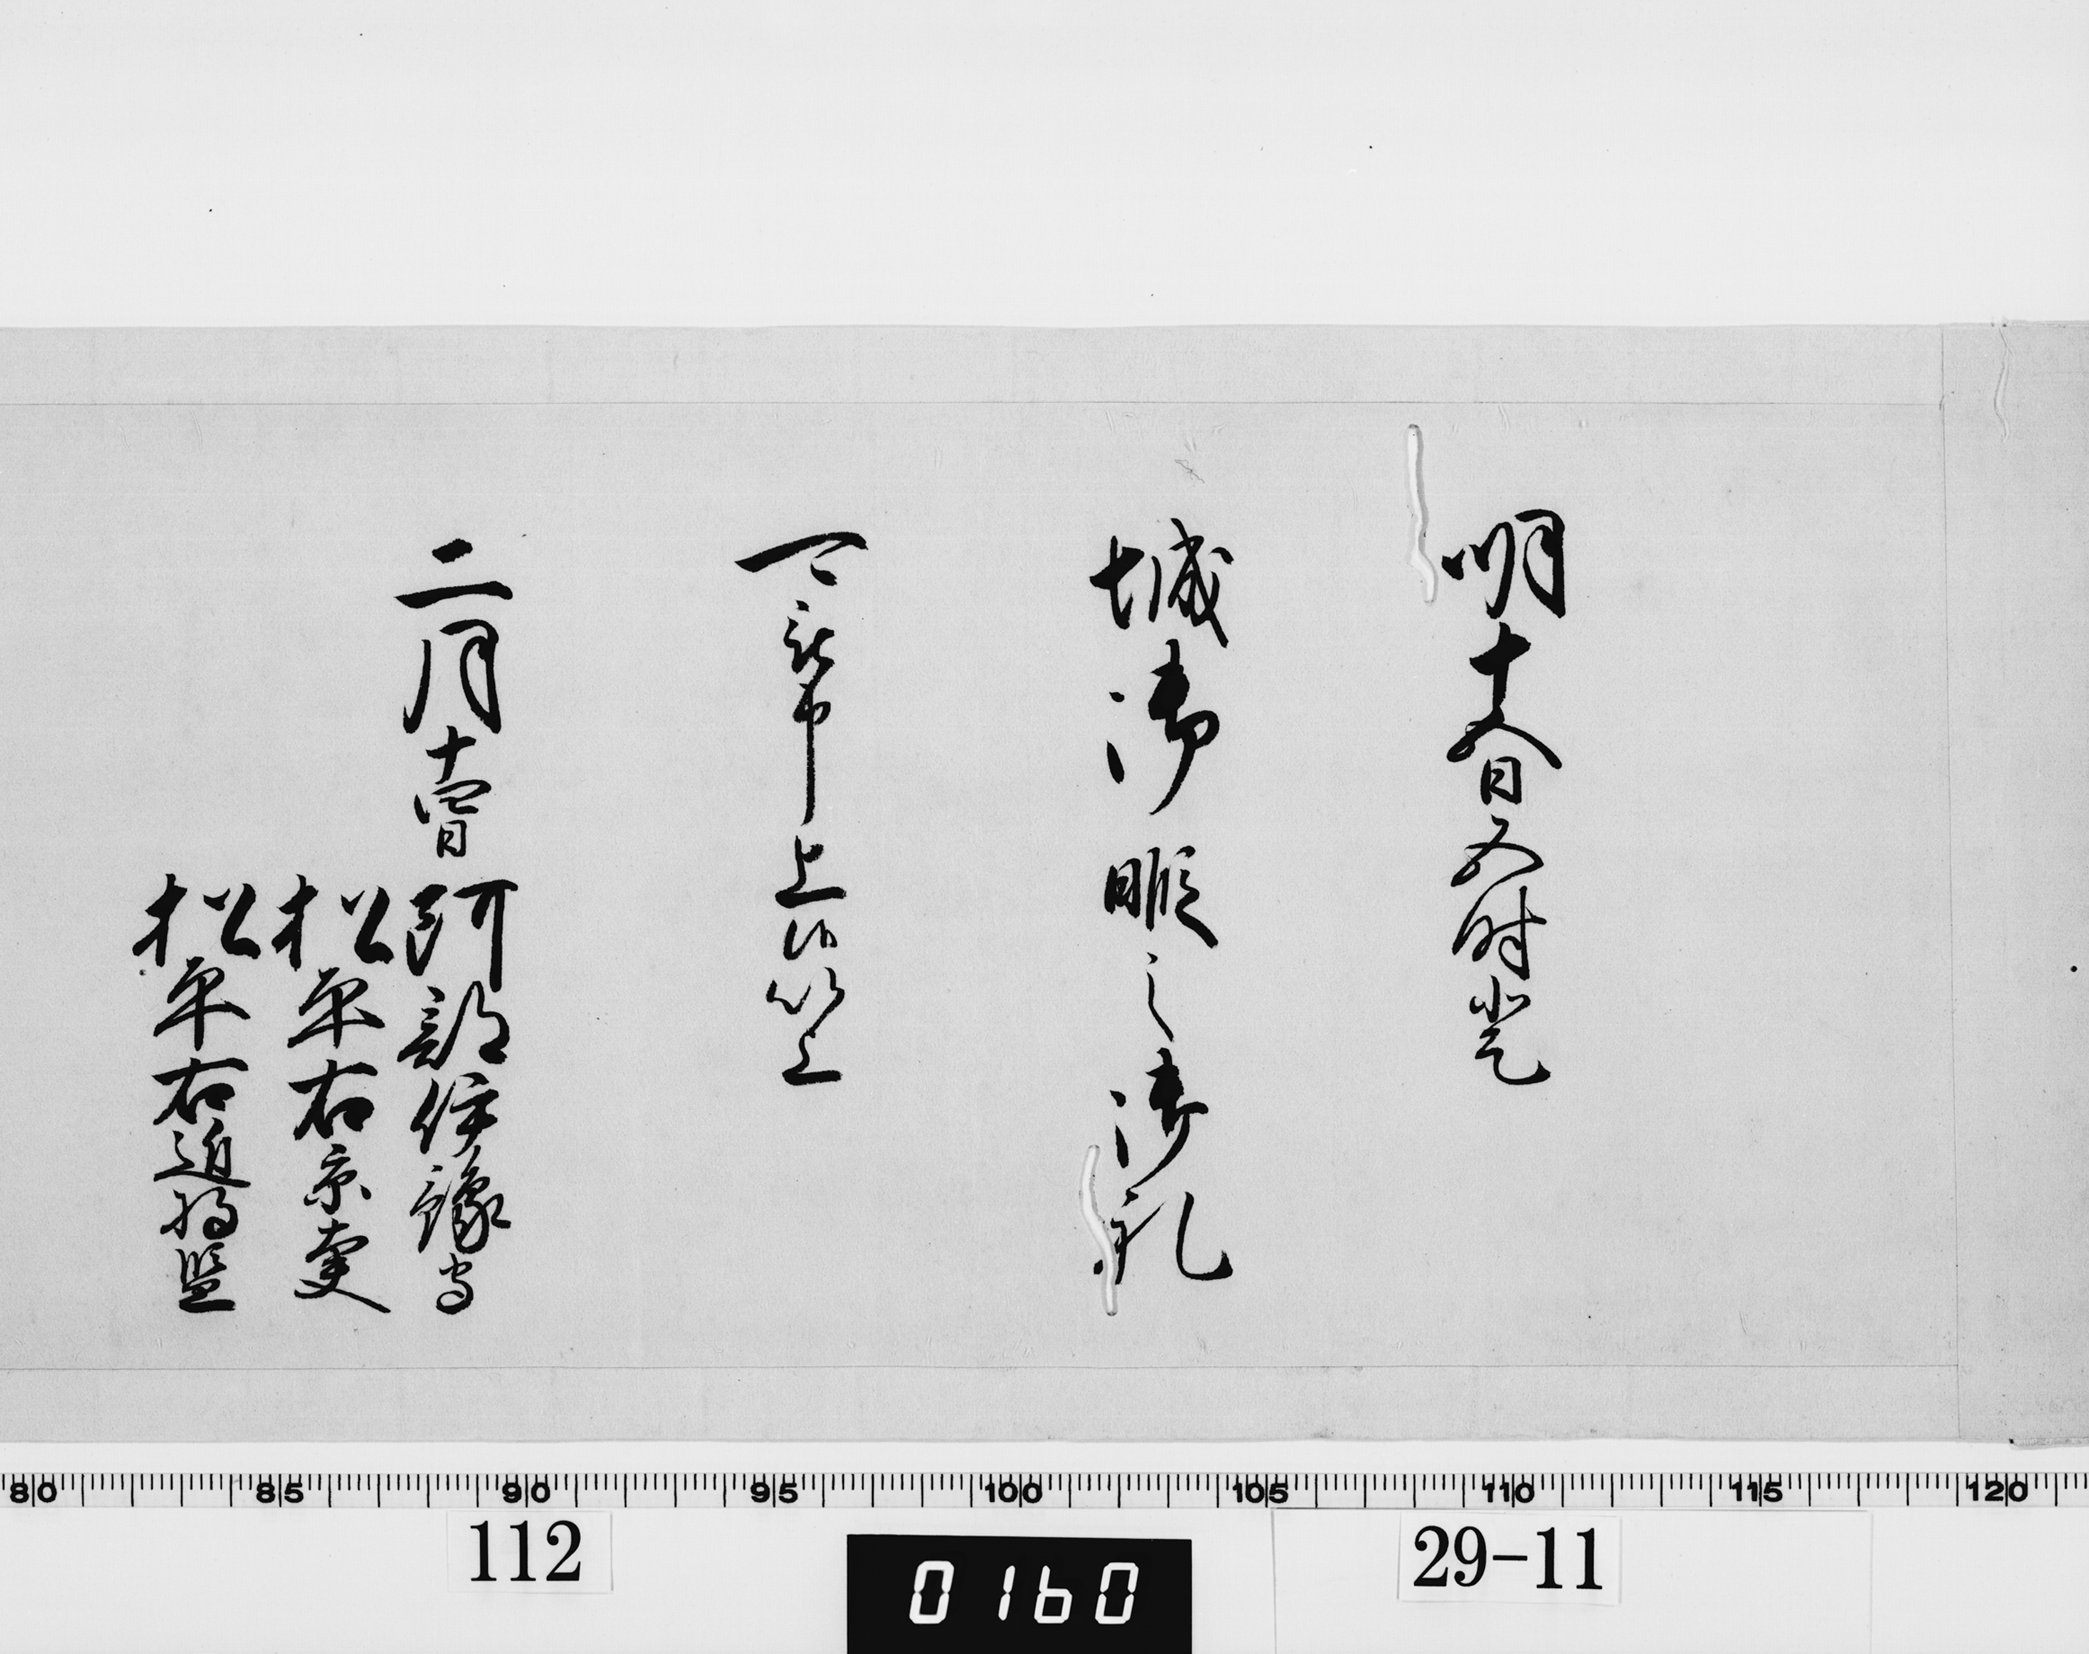 明十五日五時登
城御暇之御礼
可被申上候以上
二月十四日 阿部伊豫守
松平右京大夫
松平右近将監
80 85 90 95 100 105 110 115 120
112
0160
29-11